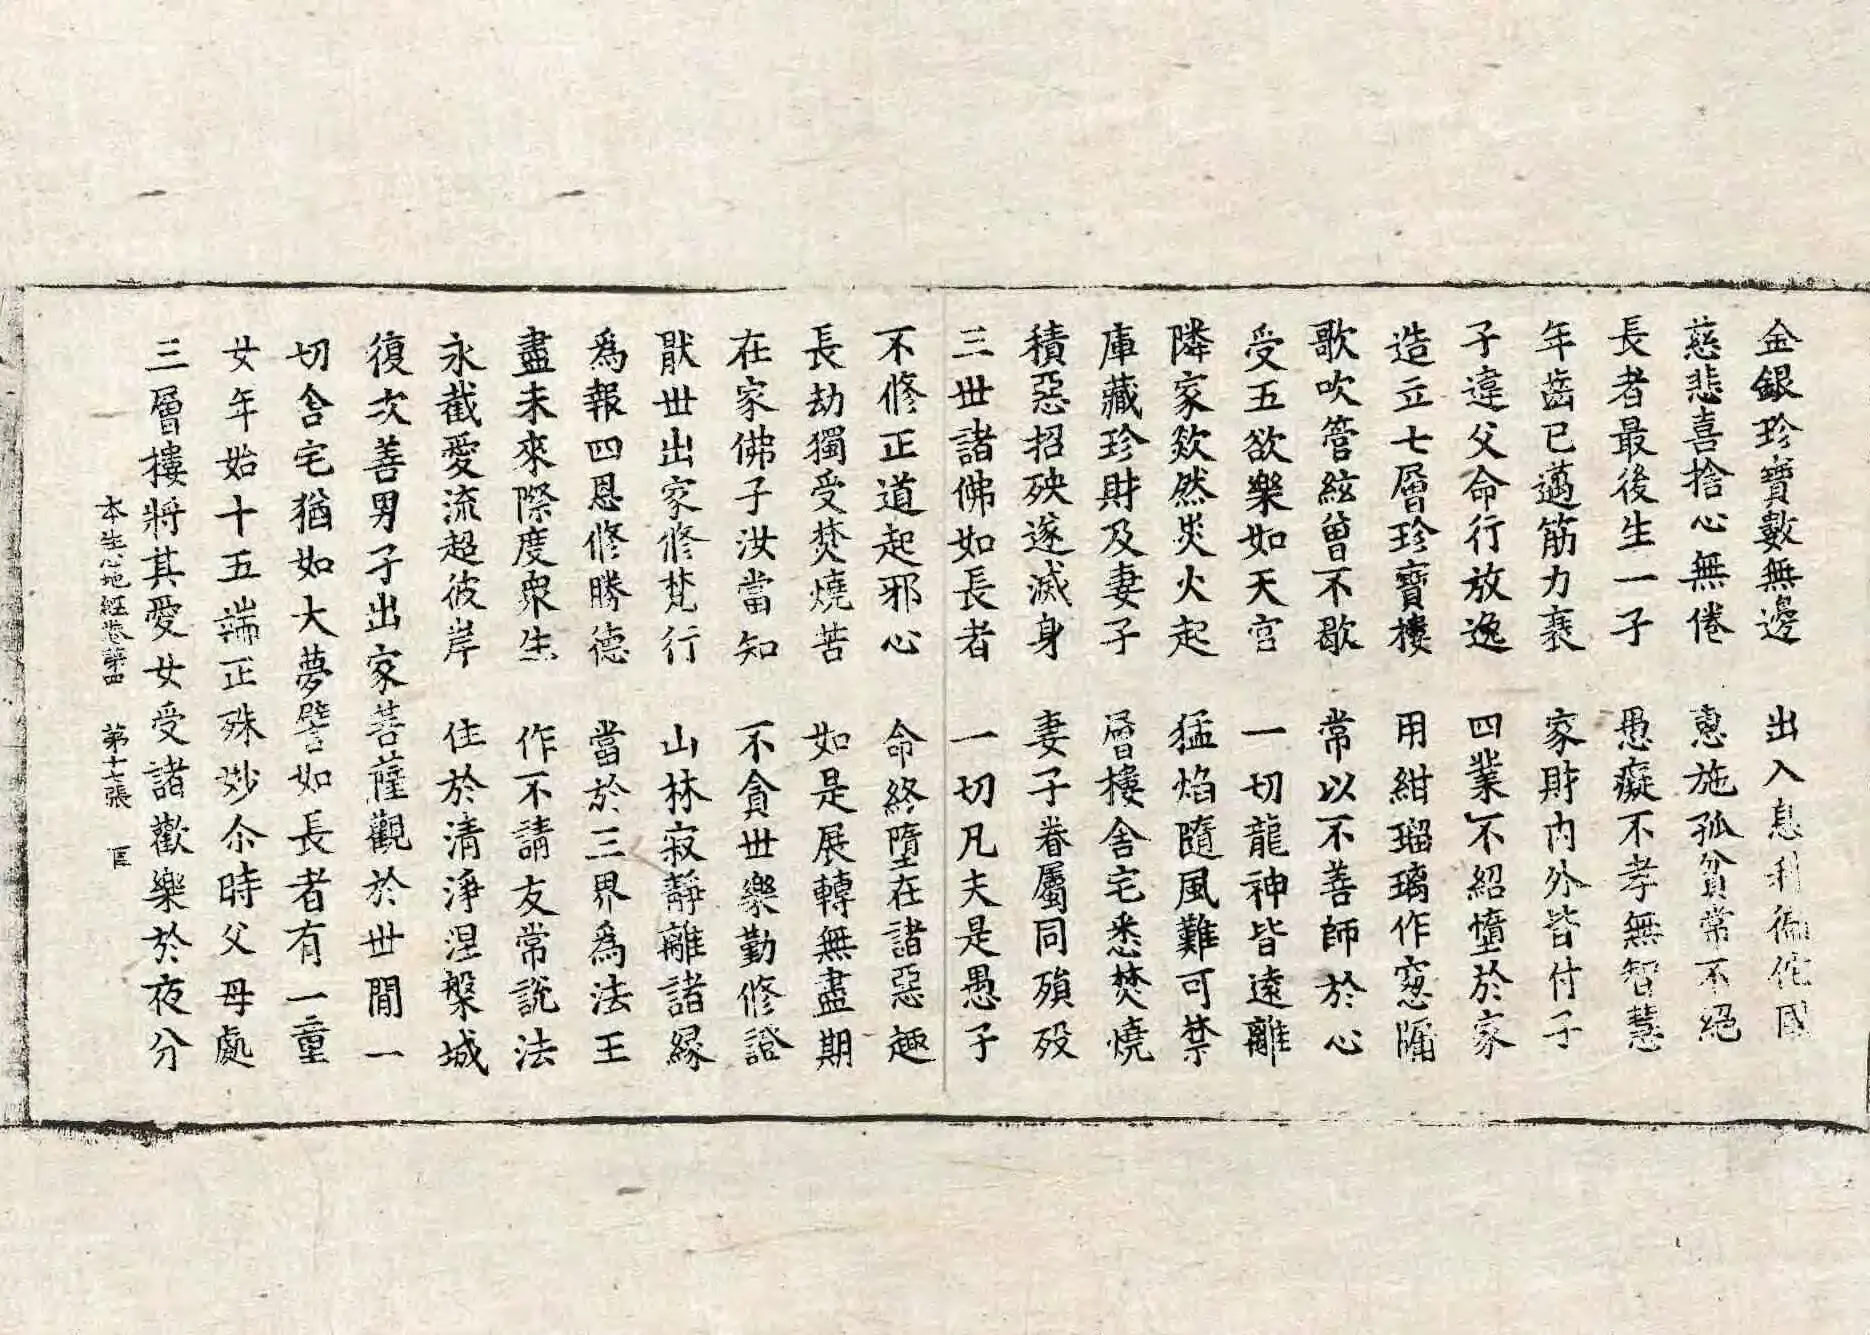 金銀珍寶數無邊　出入息利徧佗國
慈悲喜捨心無倦　惠施孤貧常不絕
長者最後生一子　愚癡不孝無智慧
年齒已邁筋力衰　家財內外皆付子
子違父命行放逸　四業不紹墮於家
造立七層珍寶樓　用紺瑠璃作窓牖
歌吹管絃曾不歇　常以不善師於心
受五欲樂如天宮　一切龍神皆遠離
隣家欻然災火起　猛焰隨風難可禁
庫藏珍財及妻子　層樓舍宅悉焚燒
積惡招殃遂滅身　妻子眷屬同殞歿
三世諸佛如長者　一切凡夫是愚子
不修正道起邪心　命終墮在諸惡趣
長劫獨受焚燒苦　如是展轉無盡期
在家佛子汝當知　不貪世樂勤修證
厭世出家修梵行　山林寂靜離諸緣
為報四恩修勝德　當於三界為法王
盡未來際度衆生　作不請友常說法
永截愛流超彼岸　住於清淨涅槃城
復次善男子出家菩薩觀於世間一
切舍宅猶如大夢譬如長者有一童
女年始十五端正殊妙尒時父母處
三層樓將其愛女受諸歡樂於夜分
本生心地經卷第四　第十七張